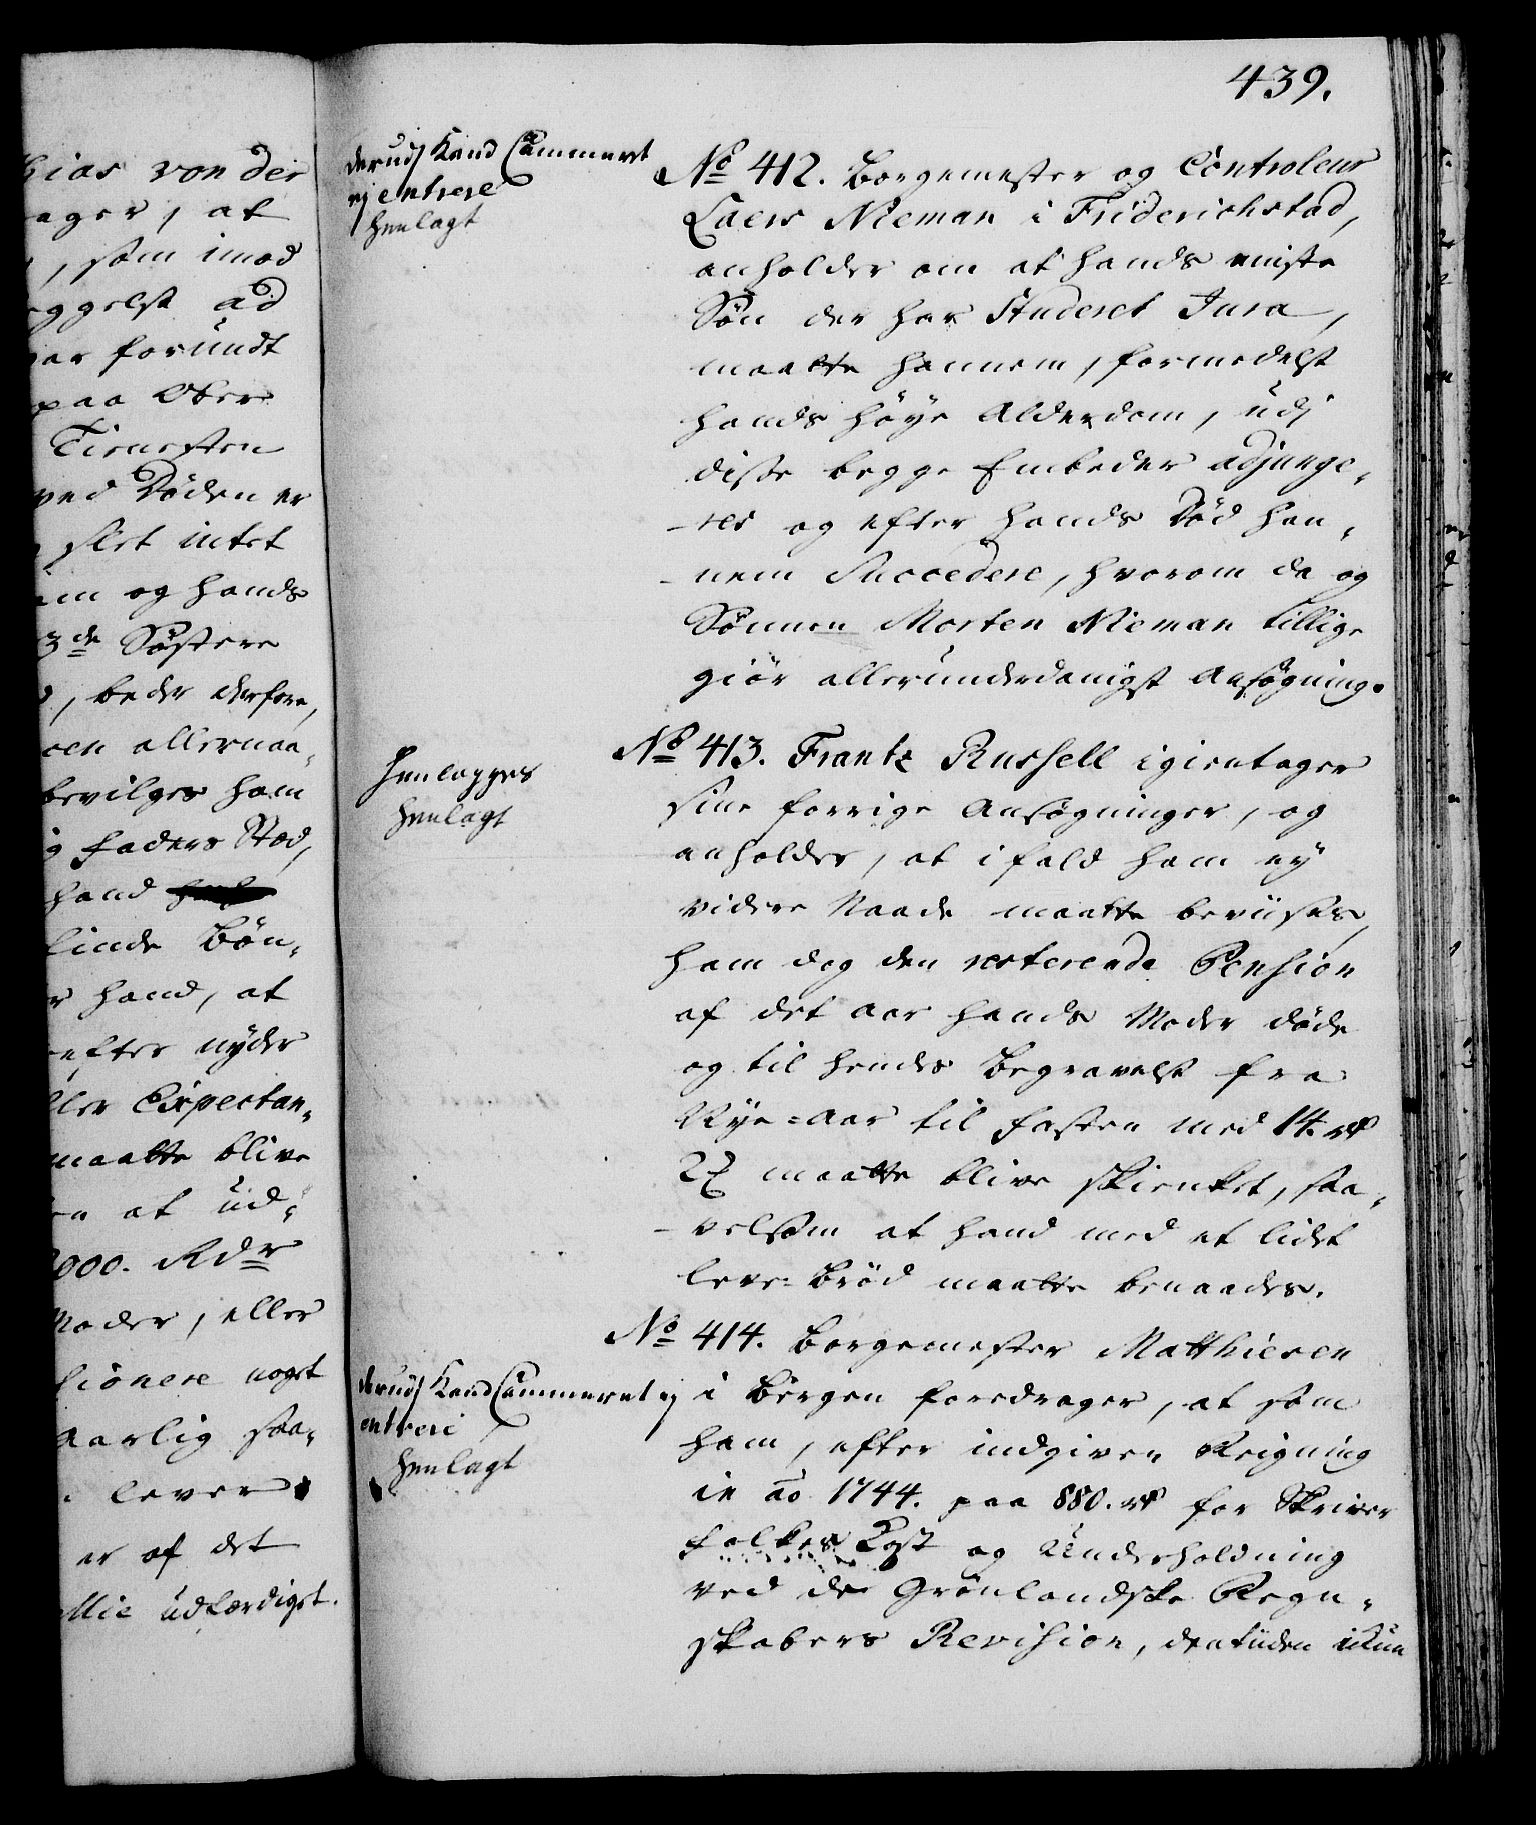 439.
hias von der
ager, at
, som imod
yggelse ad
par forundt
paa Ober
Tienesten
ved Døden er
slet intet
og hands
3de Søstere
, beder derfore,
allernaa-
bevilges ham
Faders Stæd,
hand
linde Bøn-
hand, at
efter nyder
ller Expectan-
maatte blive
at ud-
000. Rdr
Moder, eller
sionere noget
aarlig saa-
lever
er af det
llie udfærdiget.
derudj Kand Cammeret
ej entrere
Henlagt
No 412. Borgemester og Controleur
Laers Nieman i Friderichstad,
anholder om at hands eniste
Søn der har Studeret Jura,
maatte hannem, formedelst
hands høye Alderdom, udj
disse begge Embeder adjunge-
-res og efter hands Død han-
-nem Succedere, hvorom da og
Sønnen Morten Nieman tillige
giør allerunderdanigst Ansøgning.
Henlegges
Henlagt
No 413. Frantz Russell igientager
sine forrige Ansøgninger, og
anholder, at ifald ham ey
videre Naade maatte beviises,
ham dog den resterende Pension
af det Aar hands Moder døde
og til hendes Begravelse fra
Nye=Aar til Fasten med 14. rd
2 maatte blive skienket, saa-
-velsom at hand med et lidet
leve=Brød maatte benaades.
derudj Kand Cammeret ej
entrere
Henlagt
No 414. Borgemester Matthiesen
i Bergen foredrager, at som
ham, efter indgiven Reigning
in ao 1744. paa 880. rd for Skriver
folkes Kost og Underholdning
ved de Grønlandske Regn-
skabers Revision, dentiiden ikun